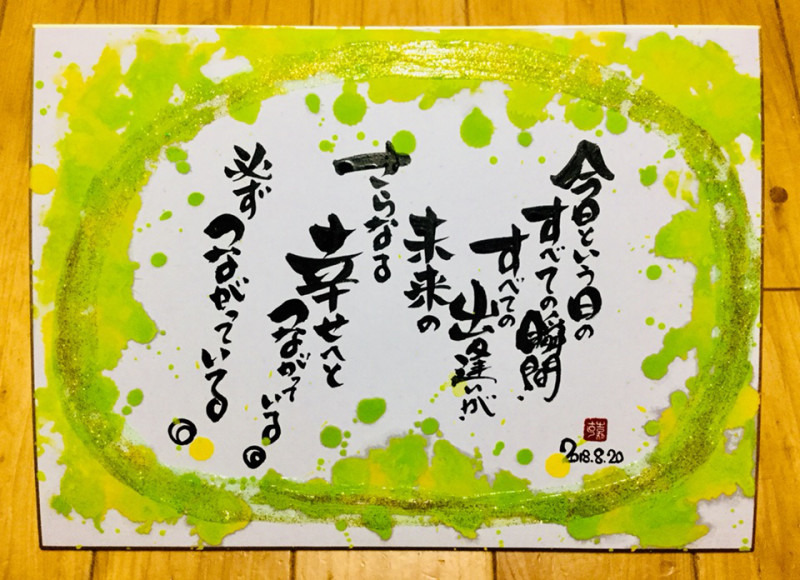 今日という日の
すべての瞬間、
すべての
出逢いが
未来の
さらなる
幸せへと
つながっている。
必ず
つながっている。
2018.8.20